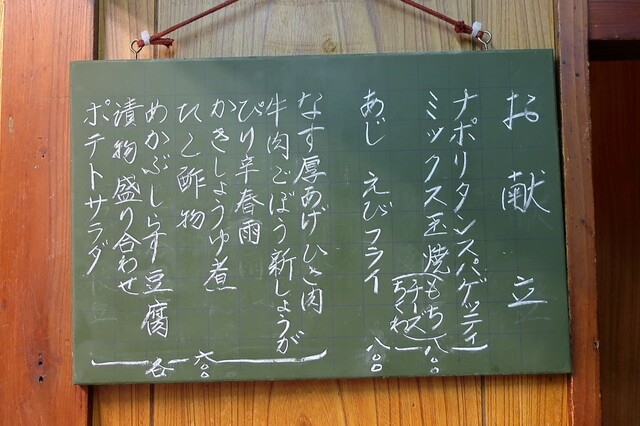 お献立
ナポリタンスパゲッティ
ミックス玉焼(もち
チーズ
ちくわ)
八〇〇
あじ えびフライ 八〇〇
なす厚あげひき肉
牛肉ごぼう新しょうが
ぴり辛春雨
かきしょうゆ煮
たこ酢物
めかぶしらす豆腐
漬物盛り合わせ
ポテトサラダ
各 六〇〇